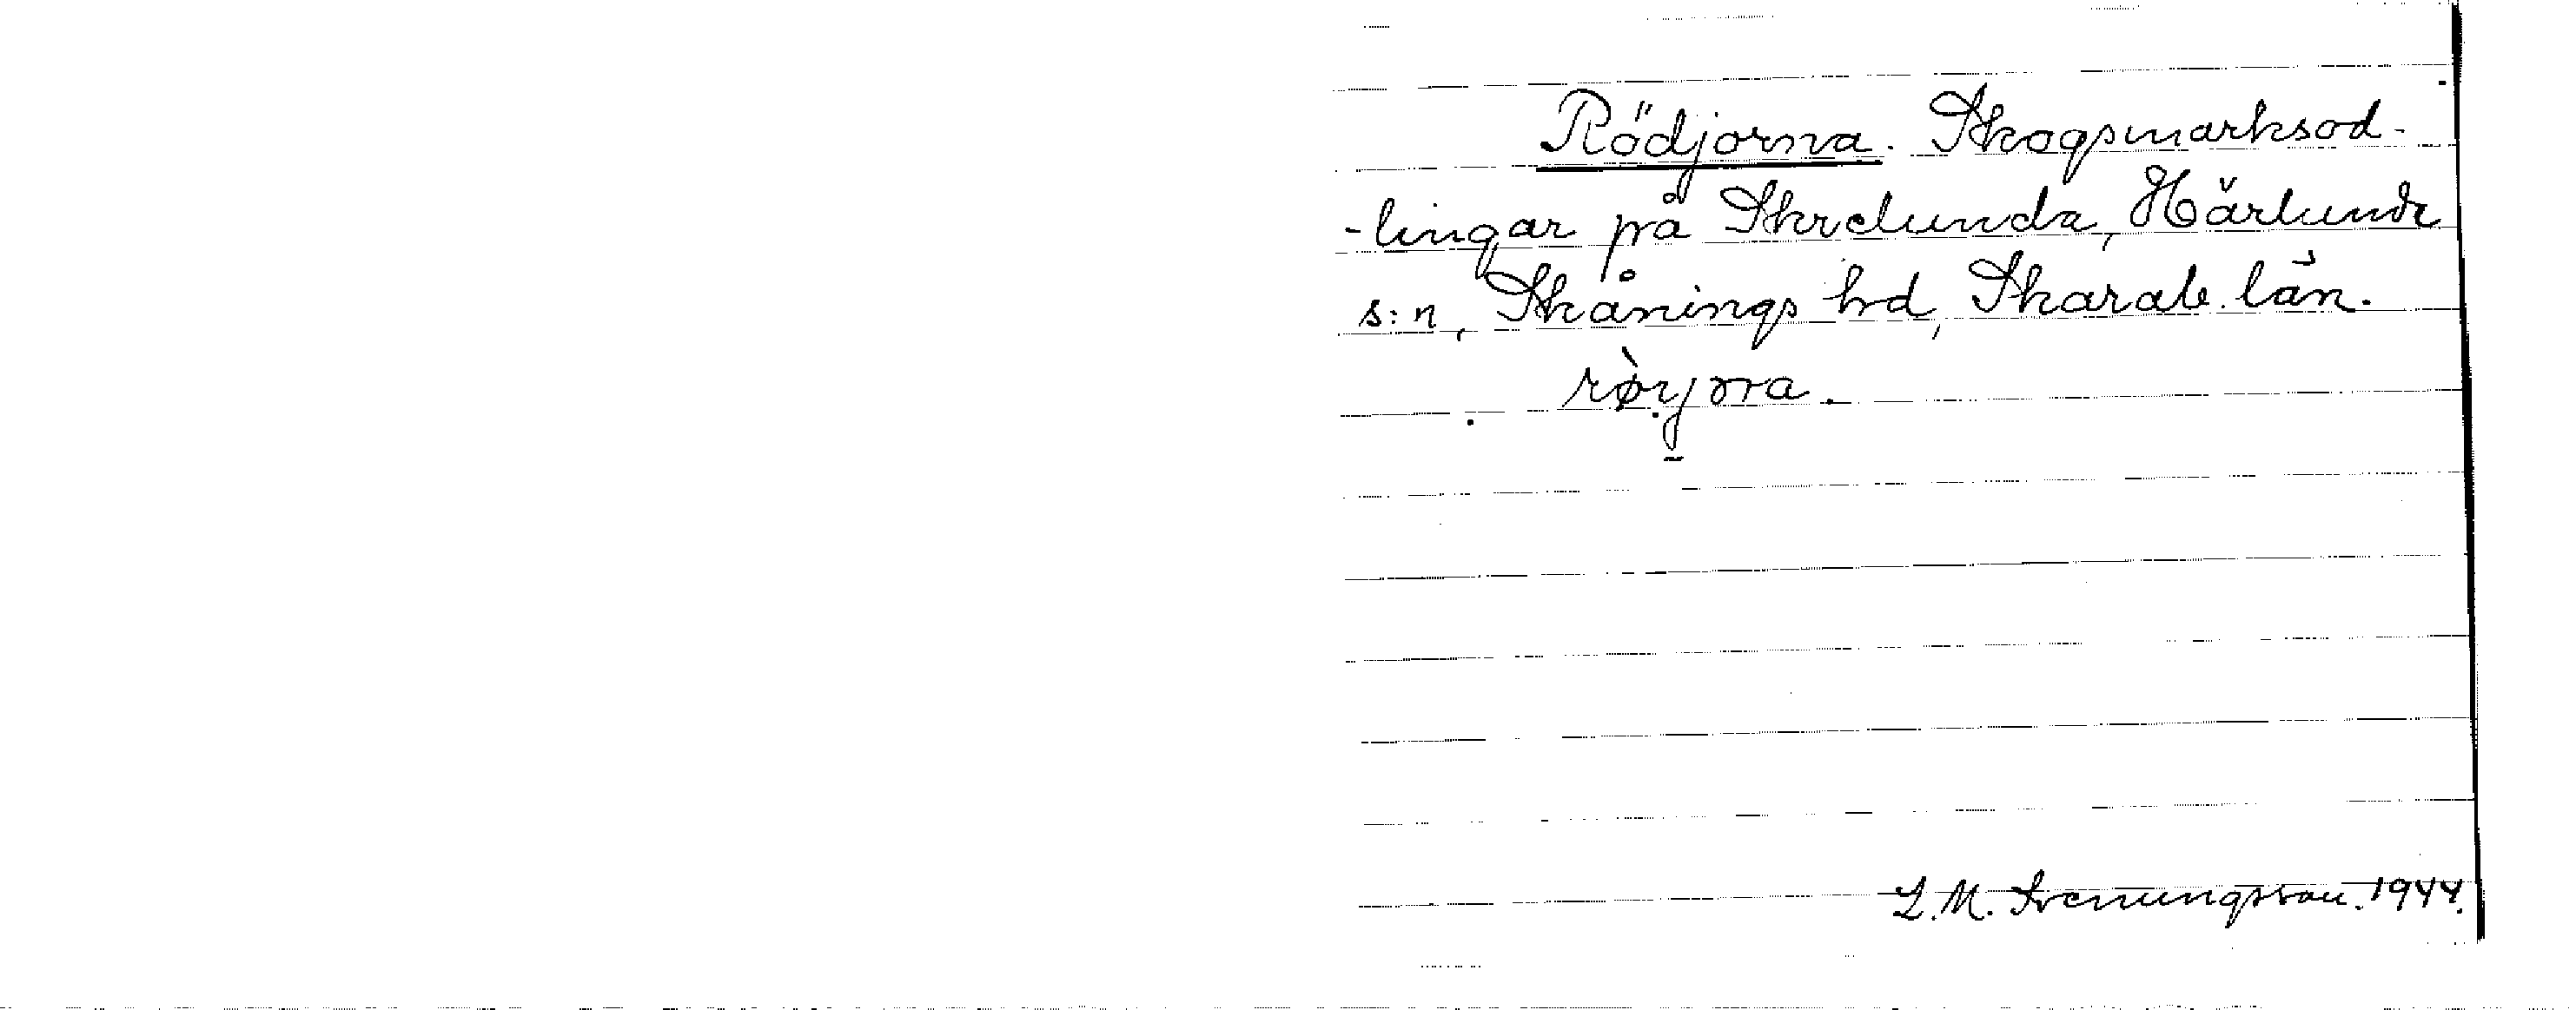 Rödjorna. Skogsmarksod-
-lingar på Skrelunda, Härlunda
s:n, Skånings hd, Skarab. län.
L. M. Svenungsson. 1944.